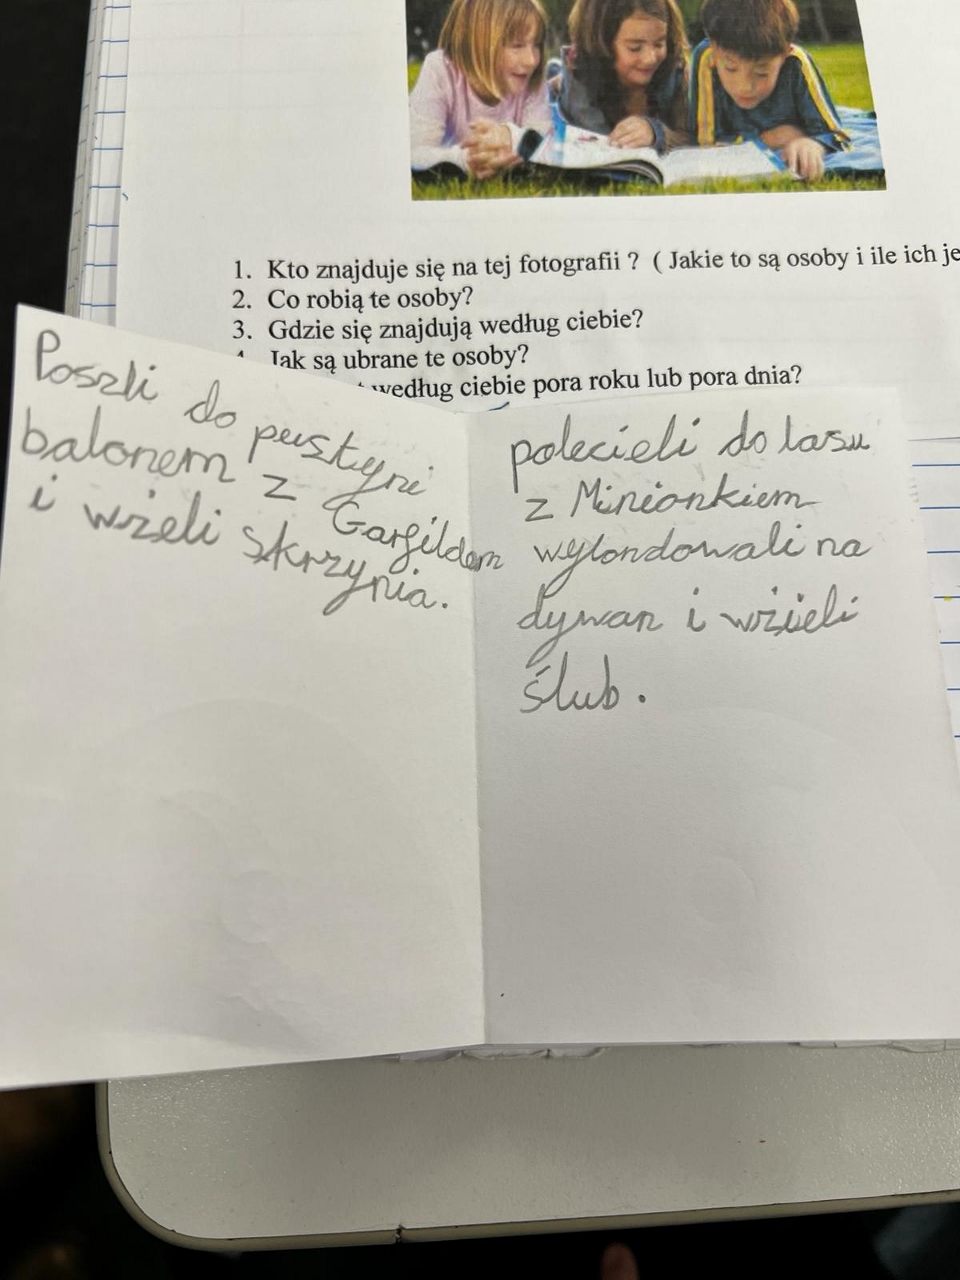 1. Kto znajduje się na tej fotografii ? ( Jakie to są osoby i ile ich je
2. Co robią te osoby?
3. Gdzie się znajdują według ciebie?
Jak są ubrane te osoby?
według ciebie pora roku lub pora dnia?
Poszli do pustyni
balonem z Garfildem
i wzieli skrzynia.
polecieli do lasu
z Minionkiem
wylondowali na
dywan i wzieli
ślub.